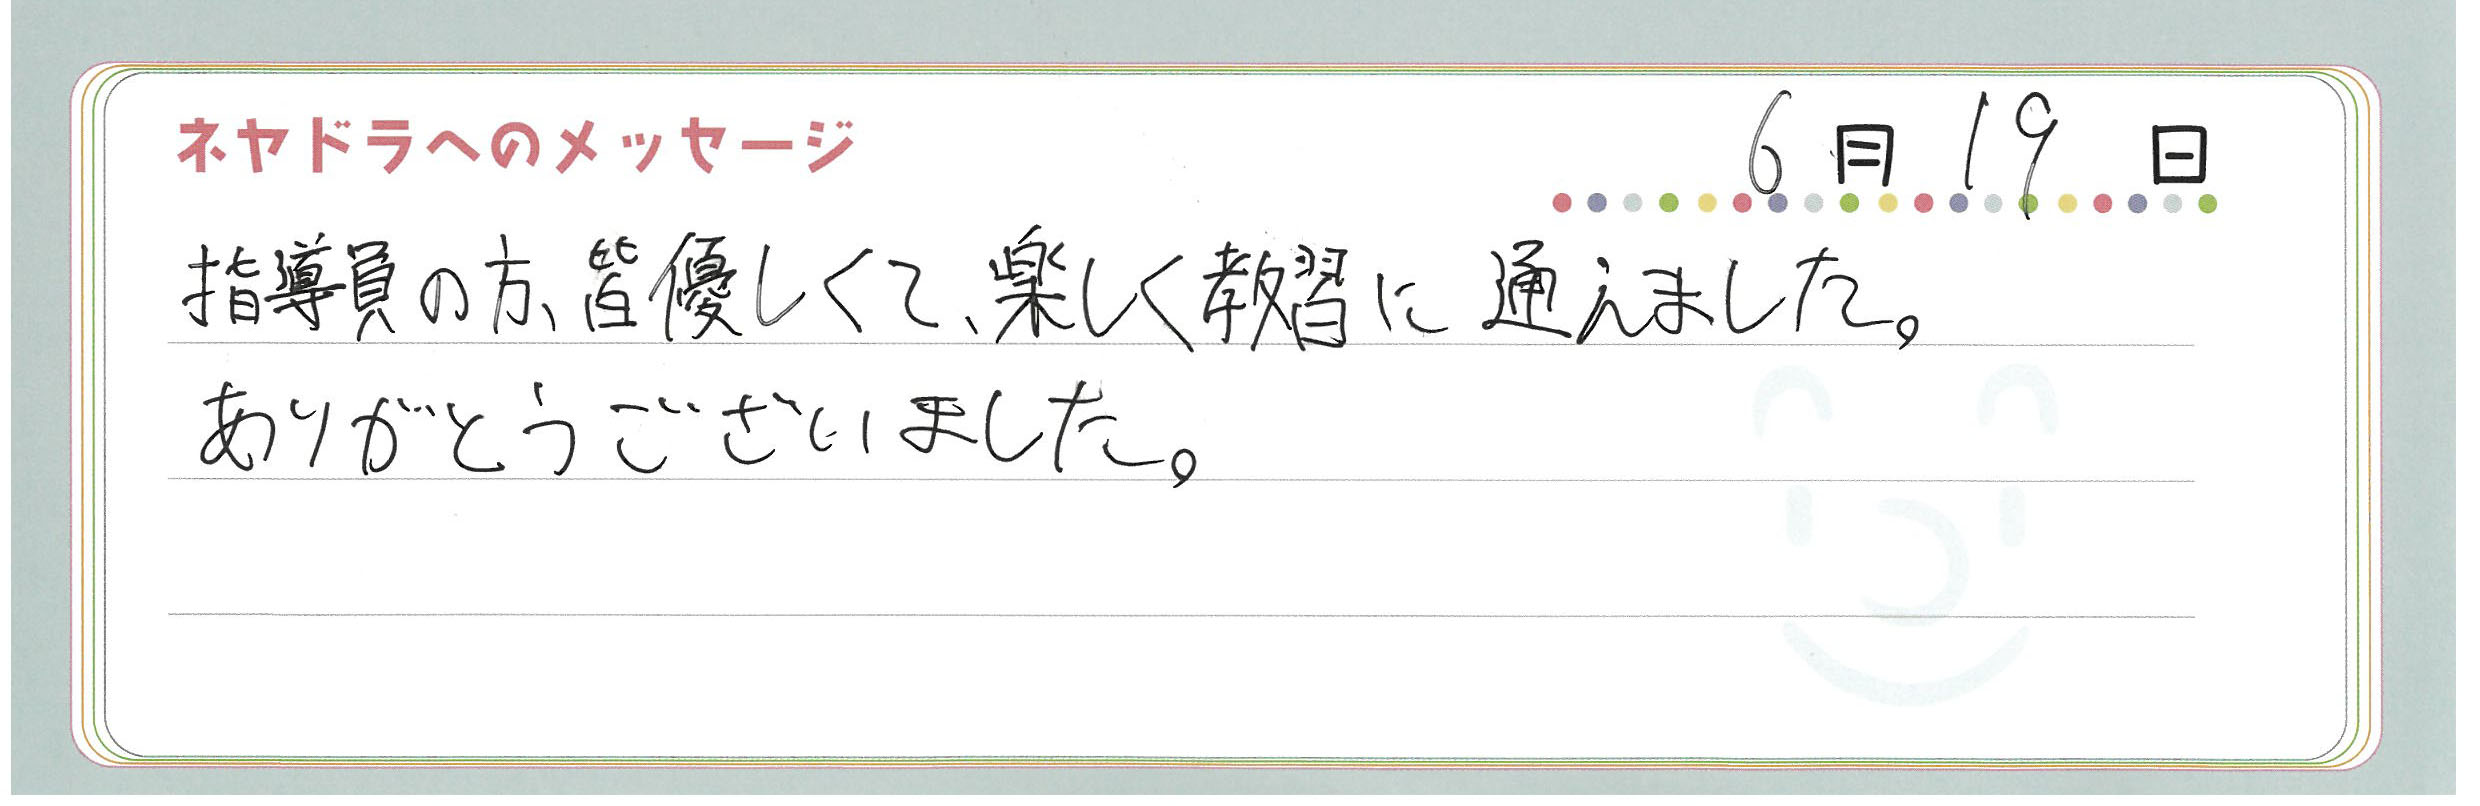 ネヤドラへのメッセージ 6月19日
指導員の方、皆優しくて、楽しく教習に通えました。
ありがとうございました。